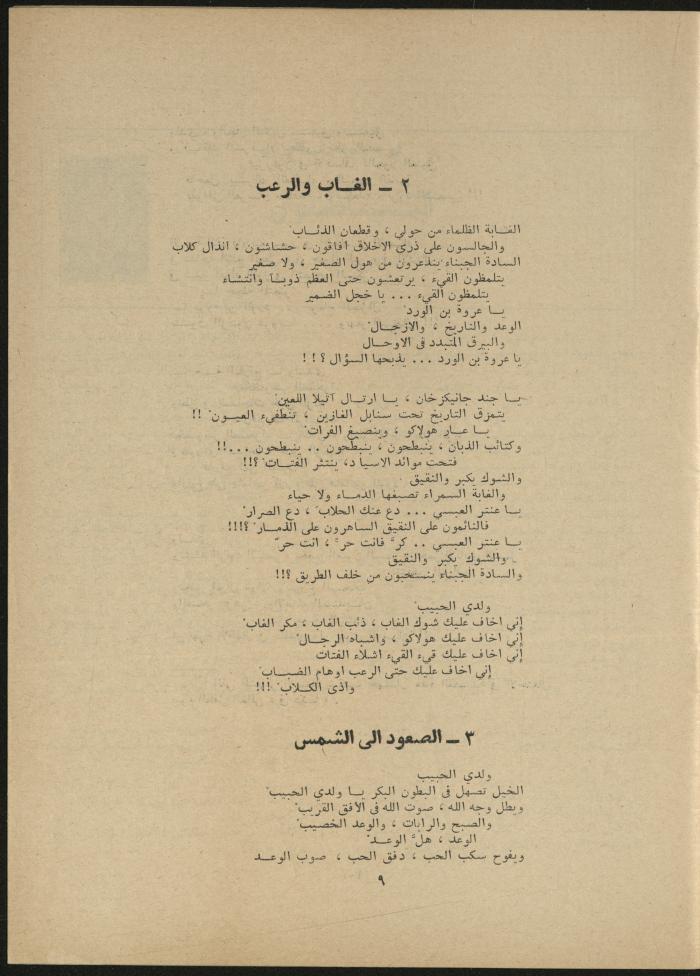 ٢ ــ الغــاب والرعب
الغــابة الظلماء من حولي ، وقطعان الذئــاب ْ
والجالسون على ذرى الاخلاق افاقون ، حشاشون ، انذال كلاب
السادة الجبناء ينذعرون من هول الصفير ، ولا صفير
يتلمظون القيء ، يرتعشون حتى العظم ذوبــا وانتشاء
يتلمظون القيء ... يا خجل الضمير
يــا عروة بن الورد ْ
الوعد والتاريخ ، والازجــال ْ
والبيرق المتبدد في الاوحــال
يا عروة بن الورد ... يذبحها السؤال ؟ ! !
يــا جند جانيكزخان ، يــا ارتــال آتيلا اللعين ْ
يتمزق التاريخ تحت سنابل الغازين ، تنطفيء العيــون ْ !!
يــا عــار هولاكو ، وينصبغ الفرات ْ
وكتائب الذبان ، ينبطحون ، ينبطحون .. ينبطحون ...!!
فتحت موائد الاسيا د، ينتثر الفتــات ْ ؟!!
والشوك يكبر والنقيق
والغابة السمراء تصبغها الدمــاء ولا حياء
يــا عنتر العبسي ... دع عنك الحلاب َ ، دع الصرار ْ
فالنائمون على النقيق الساهرون على الدمــار ْ ؟!!!
يــا عنتر العبسي .. كر ّ فانت حر ّ ، انت حر ّ
والشوك يكبر والنقيق
والسادة الجبناء ينسحبون من خلف الطريق ؟!!
ولدي الحبيب ْ
إني اخاف عليك شوك الغاب ، ذئب الغاب ، مكر الغاب ْ
إني اخاف عليك هولاكو ، واشباه الرجــال ْ
إني اخاف عليك قيء القيء اشلاء الفتات
إني اخاف عليك حتى الرعب اوهام الضبــاب ْ
واذى الكــلاب ْ !!!
٣ ــ الصعود الى الشمس
ولدي الحبيب
الخيل تصهل في البطون البكر يــا ولدي الحبيب ْ
ويطل وجه الله ، صوت الله في الافق القريب ْ
والصبح والرايات ، والوعد الخصيب ْ
الوعد ، هل ّ الوعــد ْ
ويفوح سكب الحب ، دفق الحب ، صوب الوعــد
٩